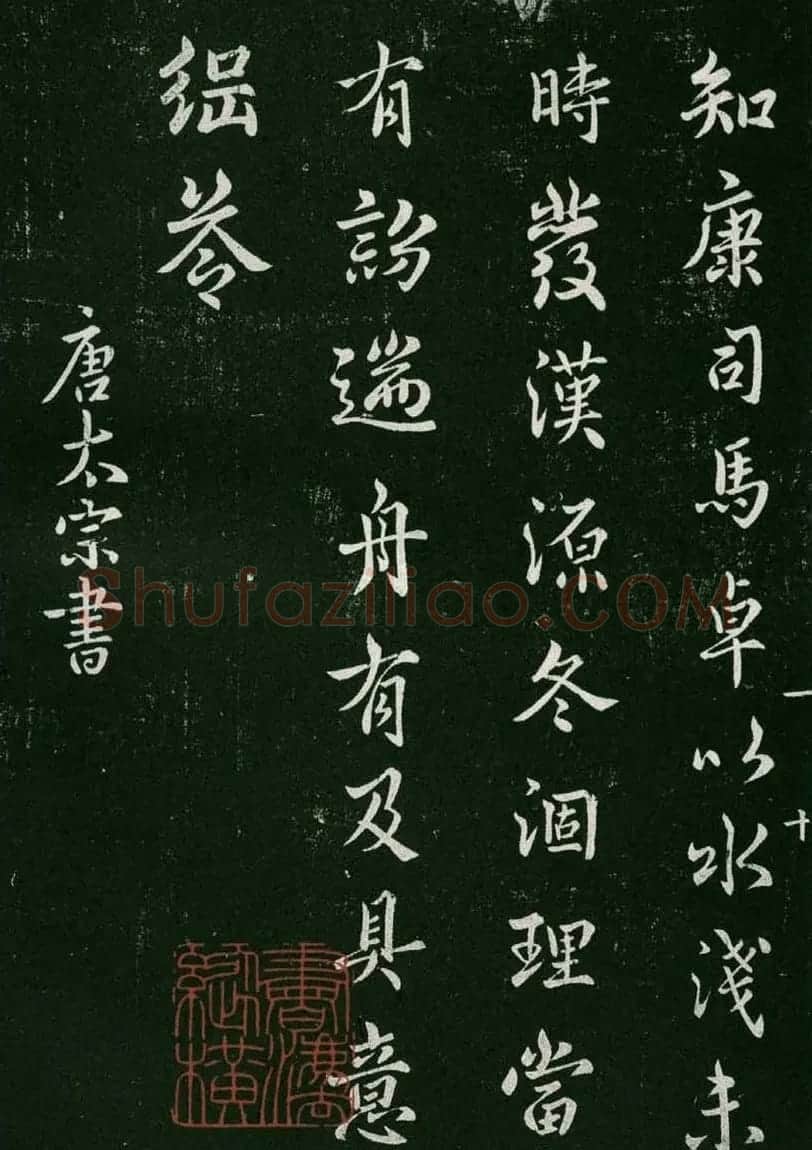 知康司馬卓以水淺未
時發漢源冬涸理當
有 遄舟有及具意
䋄苓
唐太宗書
一
十
Shufaziliao.COM
書法縱橫